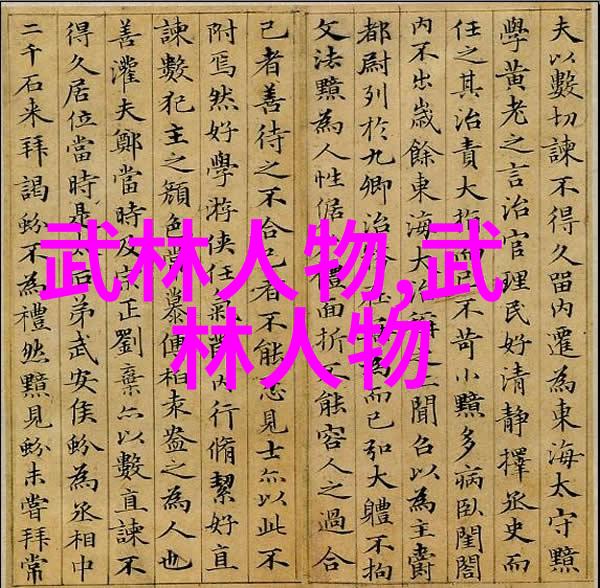 夫以數切諫不得久留內遷為東海太守黯
學黃老之言治官理民好清靜擇丞史而
任之其治責大指而已不苛小黯多病臥閨閤
內不出歲餘東海大治稱之聞召以為主爵
都尉列於九卿治在為而已弘大體不拘
文法黯為人性倨禮面折不能容人之過合
己者善待之不合己者不能忍見士亦以此不
附焉然好學游俠任氣節內行脩絜好直
諫數犯主之顏色常慕傅柏袁盎之為人也
善灌夫鄭當時及宗正劉棄亦以數直諫不
得久居位當時是后弟武安侯蚡為丞相中
二千石來拜謁蚡不為禮然黯見蚡未嘗拜常
武林人物,武
林人物